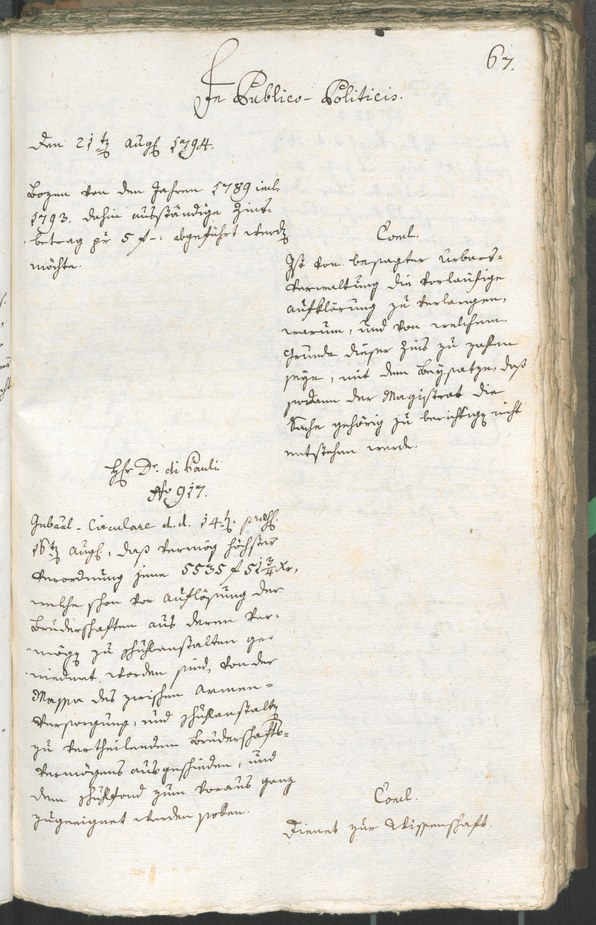 67.
In Publico-Politicis.
Den 21ten Aug. 1794.
Bozen von den Jahren 1789 incl.
1793. dahin ausständige Zins-
betrag pr 5 f -: abgeführt werden
möchte.
Concl.
Ist von besagter Urbars-
verwaltung die vorläufige
Aufklärung zu verlangen,
warum, und von welchem
Grunde dieser Zins zu zahlen
seye, mit dem Beysatze, daß
sodann der Magistrat die
Sache gehörig zu berichtigen nicht
entstehen werde.
Hr Dr. di Pauli
No 917.
Gubaal-Circulare d.d. 14t.
16ten Aug., daß vermög höchster
Verordnung jene 5535 f 51 xr,
welche schon vor Auflösung der
Bruderschaften aus deren Ver-
mögen zu Schulanstalten ge-
wiedmet worden sind, von der
Massa des zwischen Armen-
versorgung, und Schulanstalten
zu vertheilenden Bruderschafts-
vermögens ausgeschieden, und
dem Schulfond zum voraus ganz
zugeeignet werden sollen.
Concl.
Dienet zur Wissenschaft.